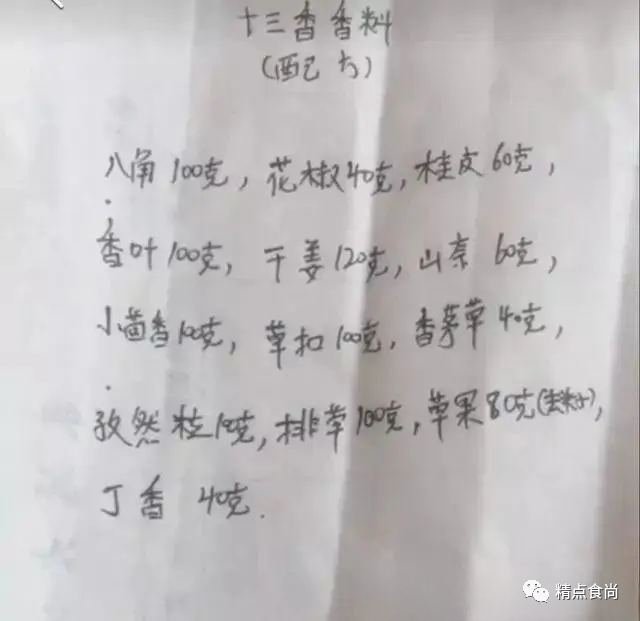 十三香香料
(配方)
八角100克，花椒40克，桂皮60克，
香叶100克，干姜120克，山奈60克，
小茴香100克，草扣100克，香茅草40克，
孜然粒100克，排草100克，草果80克(去籽)，
丁香 40克.
精点食尚